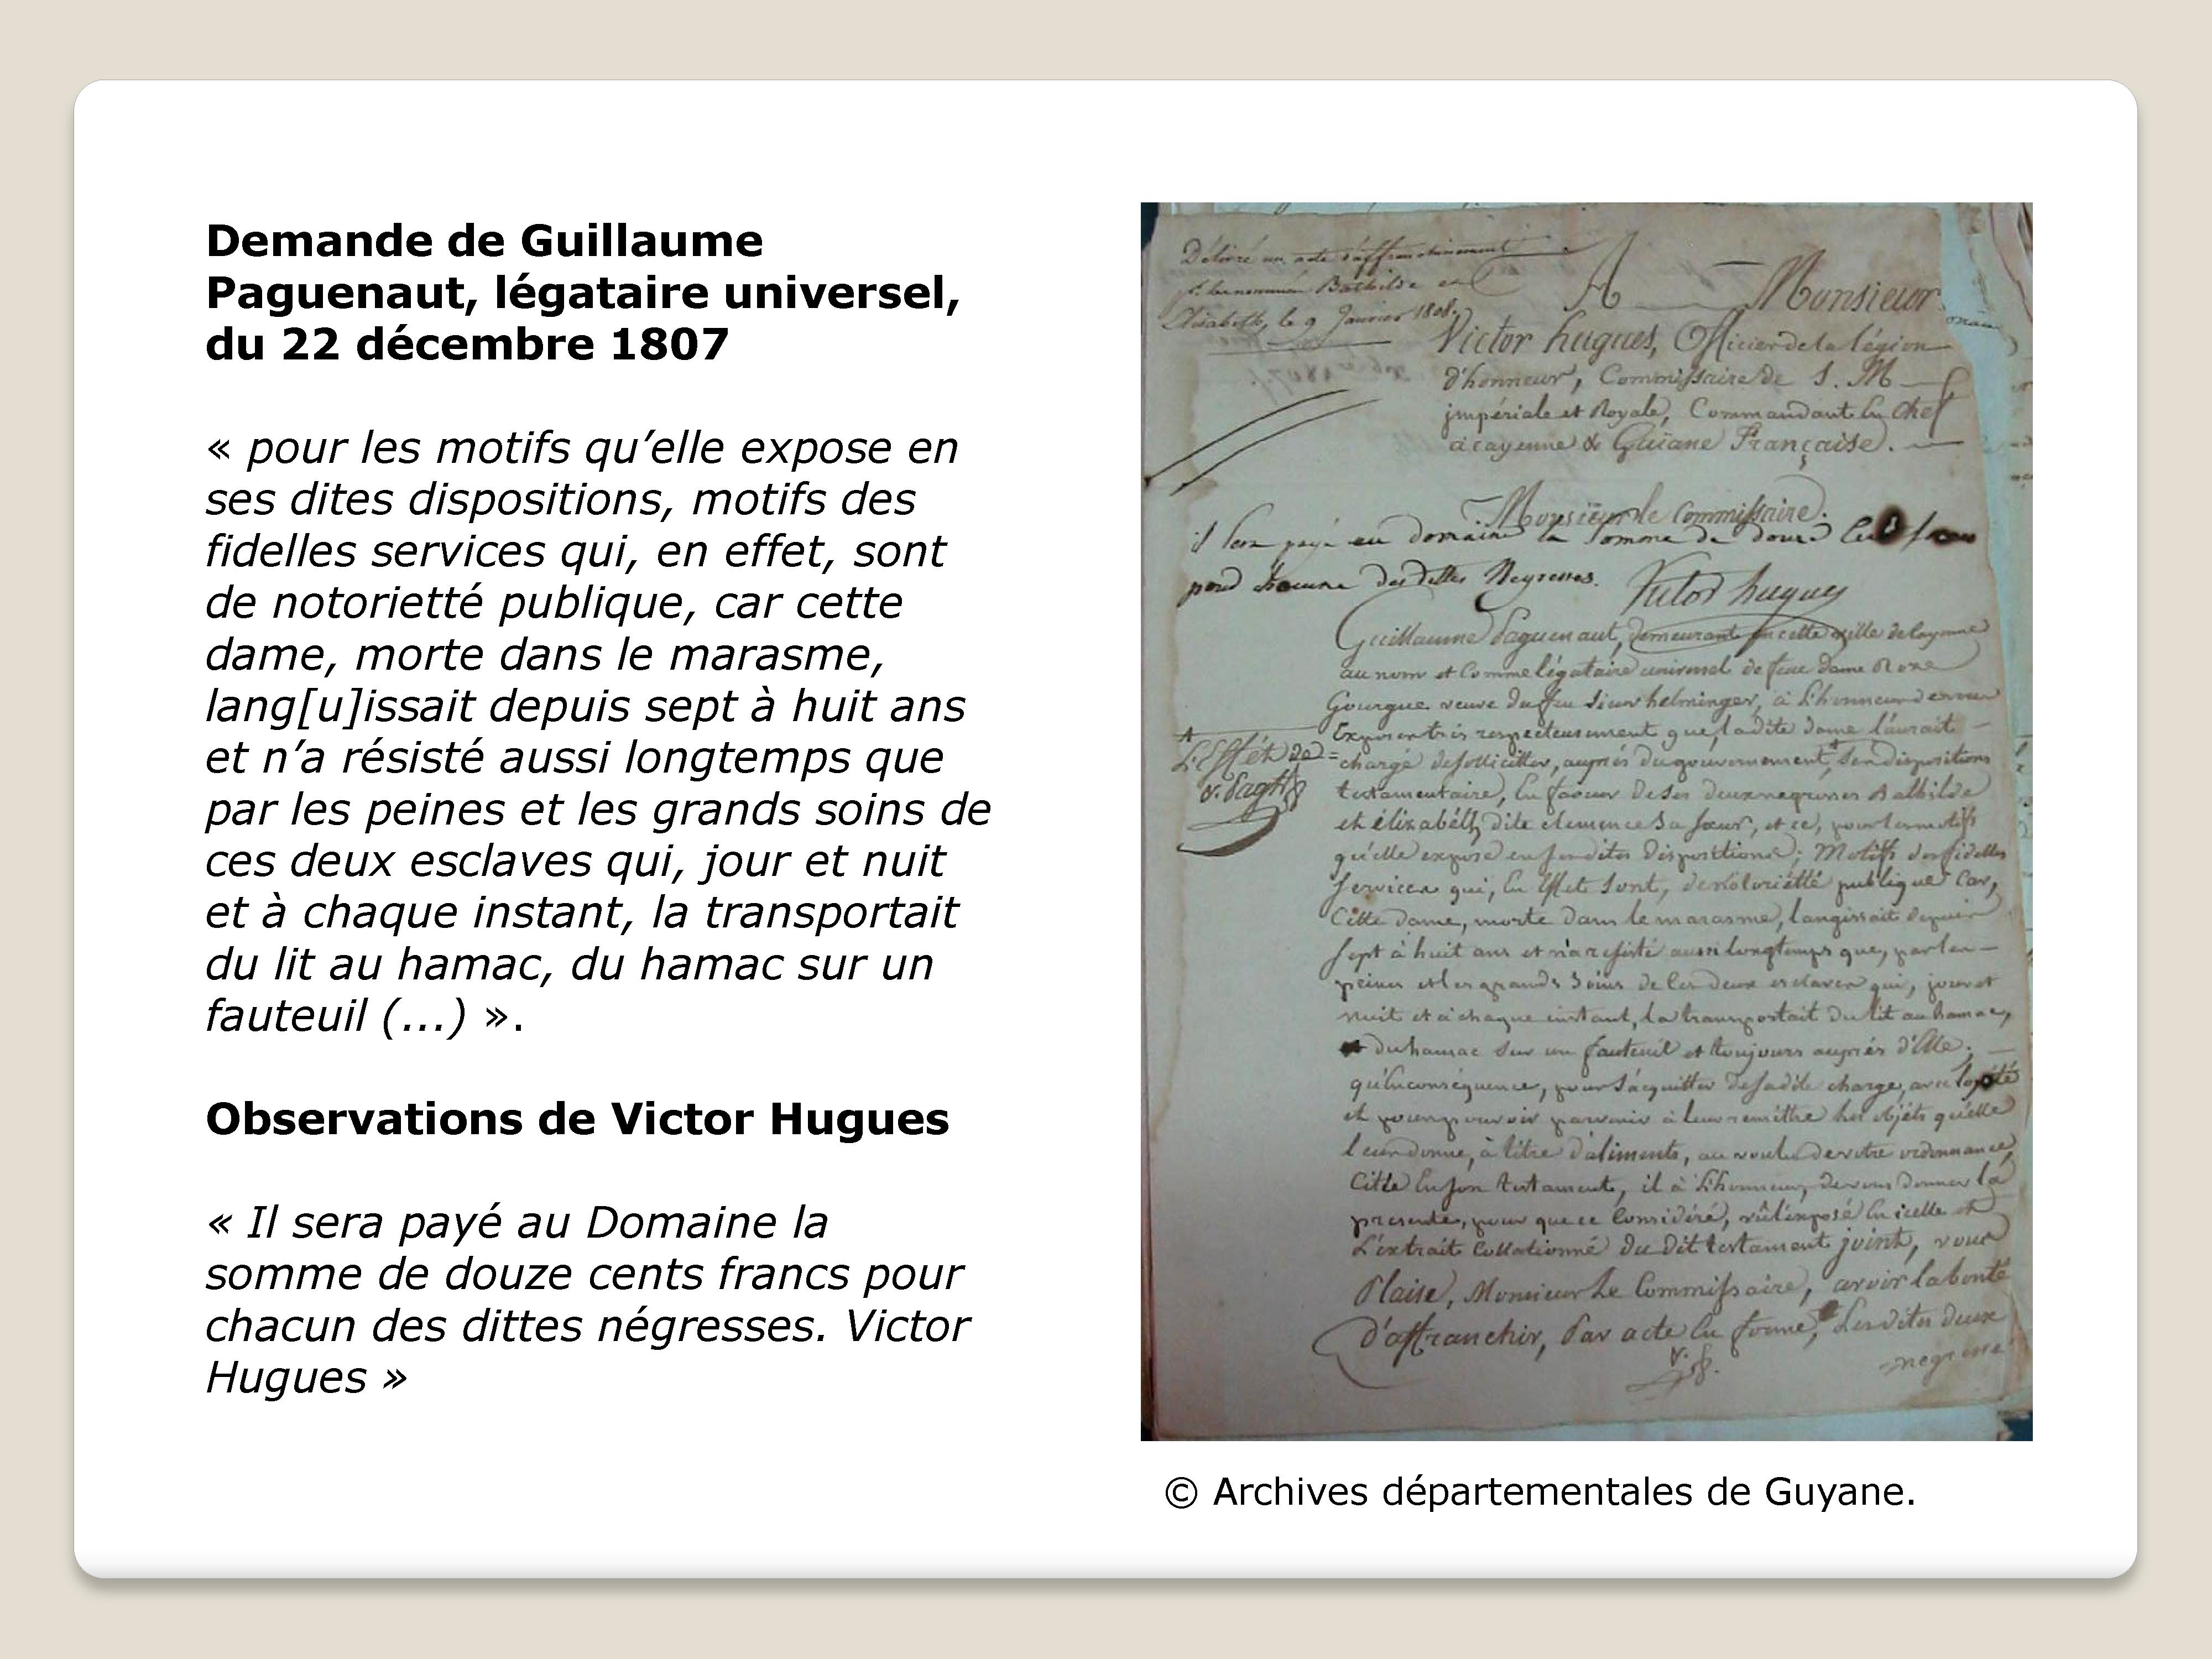 Demande de Guillaume
Paguenaut, légataire universel,
du 22 décembre 1807
« pour les motifs qu’elle expose en
ses dites dispositions, motifs des
fidelles services qui, en effet, sont
de notorietté publique, car cette
dame, morte dans le marasme,
lang[u]issait depuis sept à huit ans
et n’a résisté aussi longtemps que
par les peines et les grands soins de
ces deux esclaves qui, jour et nuit
et à chaque instant, la transportait
du lit au hamac, du hamac sur un
fauteuil (...) ».
Observations de Victor Hugues
« Il sera payé au Domaine la
somme de douze cents francs pour
chacun des dittes négresses. Victor
Hugues »
Délivré un acte d'affranchissement
Bathilde et
Elisabeth, le 9 Janvier 1808.
A Monsieur
Victor hugues, Officier de la légion
d'honneur, Commissaire de S. M
impériale et Royale, Commandant En Chef
à cayenne & Guiane Française.
Monsieur le Commissaire.
il sera payé au domaine la Somme de douze
pour chacune des dittes Negresses. Victor hugues
Guillaume Paguenaut, demeurant en cette ville de Cayenne
au nom et Comme légataire universel de feue dame Roze
Gourgue veuve du feu Sieur helminger, à L'honneur de vous
Exposer très respectueusement que, ladite dame l'aurait
chargé de solliciter, auprès du gouvernement, Ses dispositions
L'Effét de
testamentaire, En faveur de Ses deux negresses Bathilde
et élizabéth, dite clemence Sa sœur, et ce, pour les motifs
qu'elle expose en Ses dites Dispositions; Motifs des fidelles
Services qui, En effet Sont, de notoriétté publique Car,
Cette dame, morte dans le marasme, langissait depuis
Sept à huit ans et n'a résisté aussi longtemps que, par les
peines et les grands Soins de Ces deux esclaves qui, jour et
nuit et à chaque instant, la transportait du lit au hamac,
du hamac Sur un fauteuil et toujours auprès d'Elle.
qu'En conséquence, pour S'acquitter de sadite charge, avec
et pour pouvoir parvenir à leur reméttre les objéts qu'elle
leur donne, à titre d'aliments, au voulu de votre ordonnance,
Citée En son testament, il à L'honneur, de vous donner la
presente, pour que ce Considéré, vû l'exposé En icelle et
L'extrait Collationné du dit testament joint, vous
Plaise, Monsieur Le Commissaire, avoir la bonté
d'affranchir, Par acte En forme, Les dites deux
negresses
© Archives départementales de Guyane.